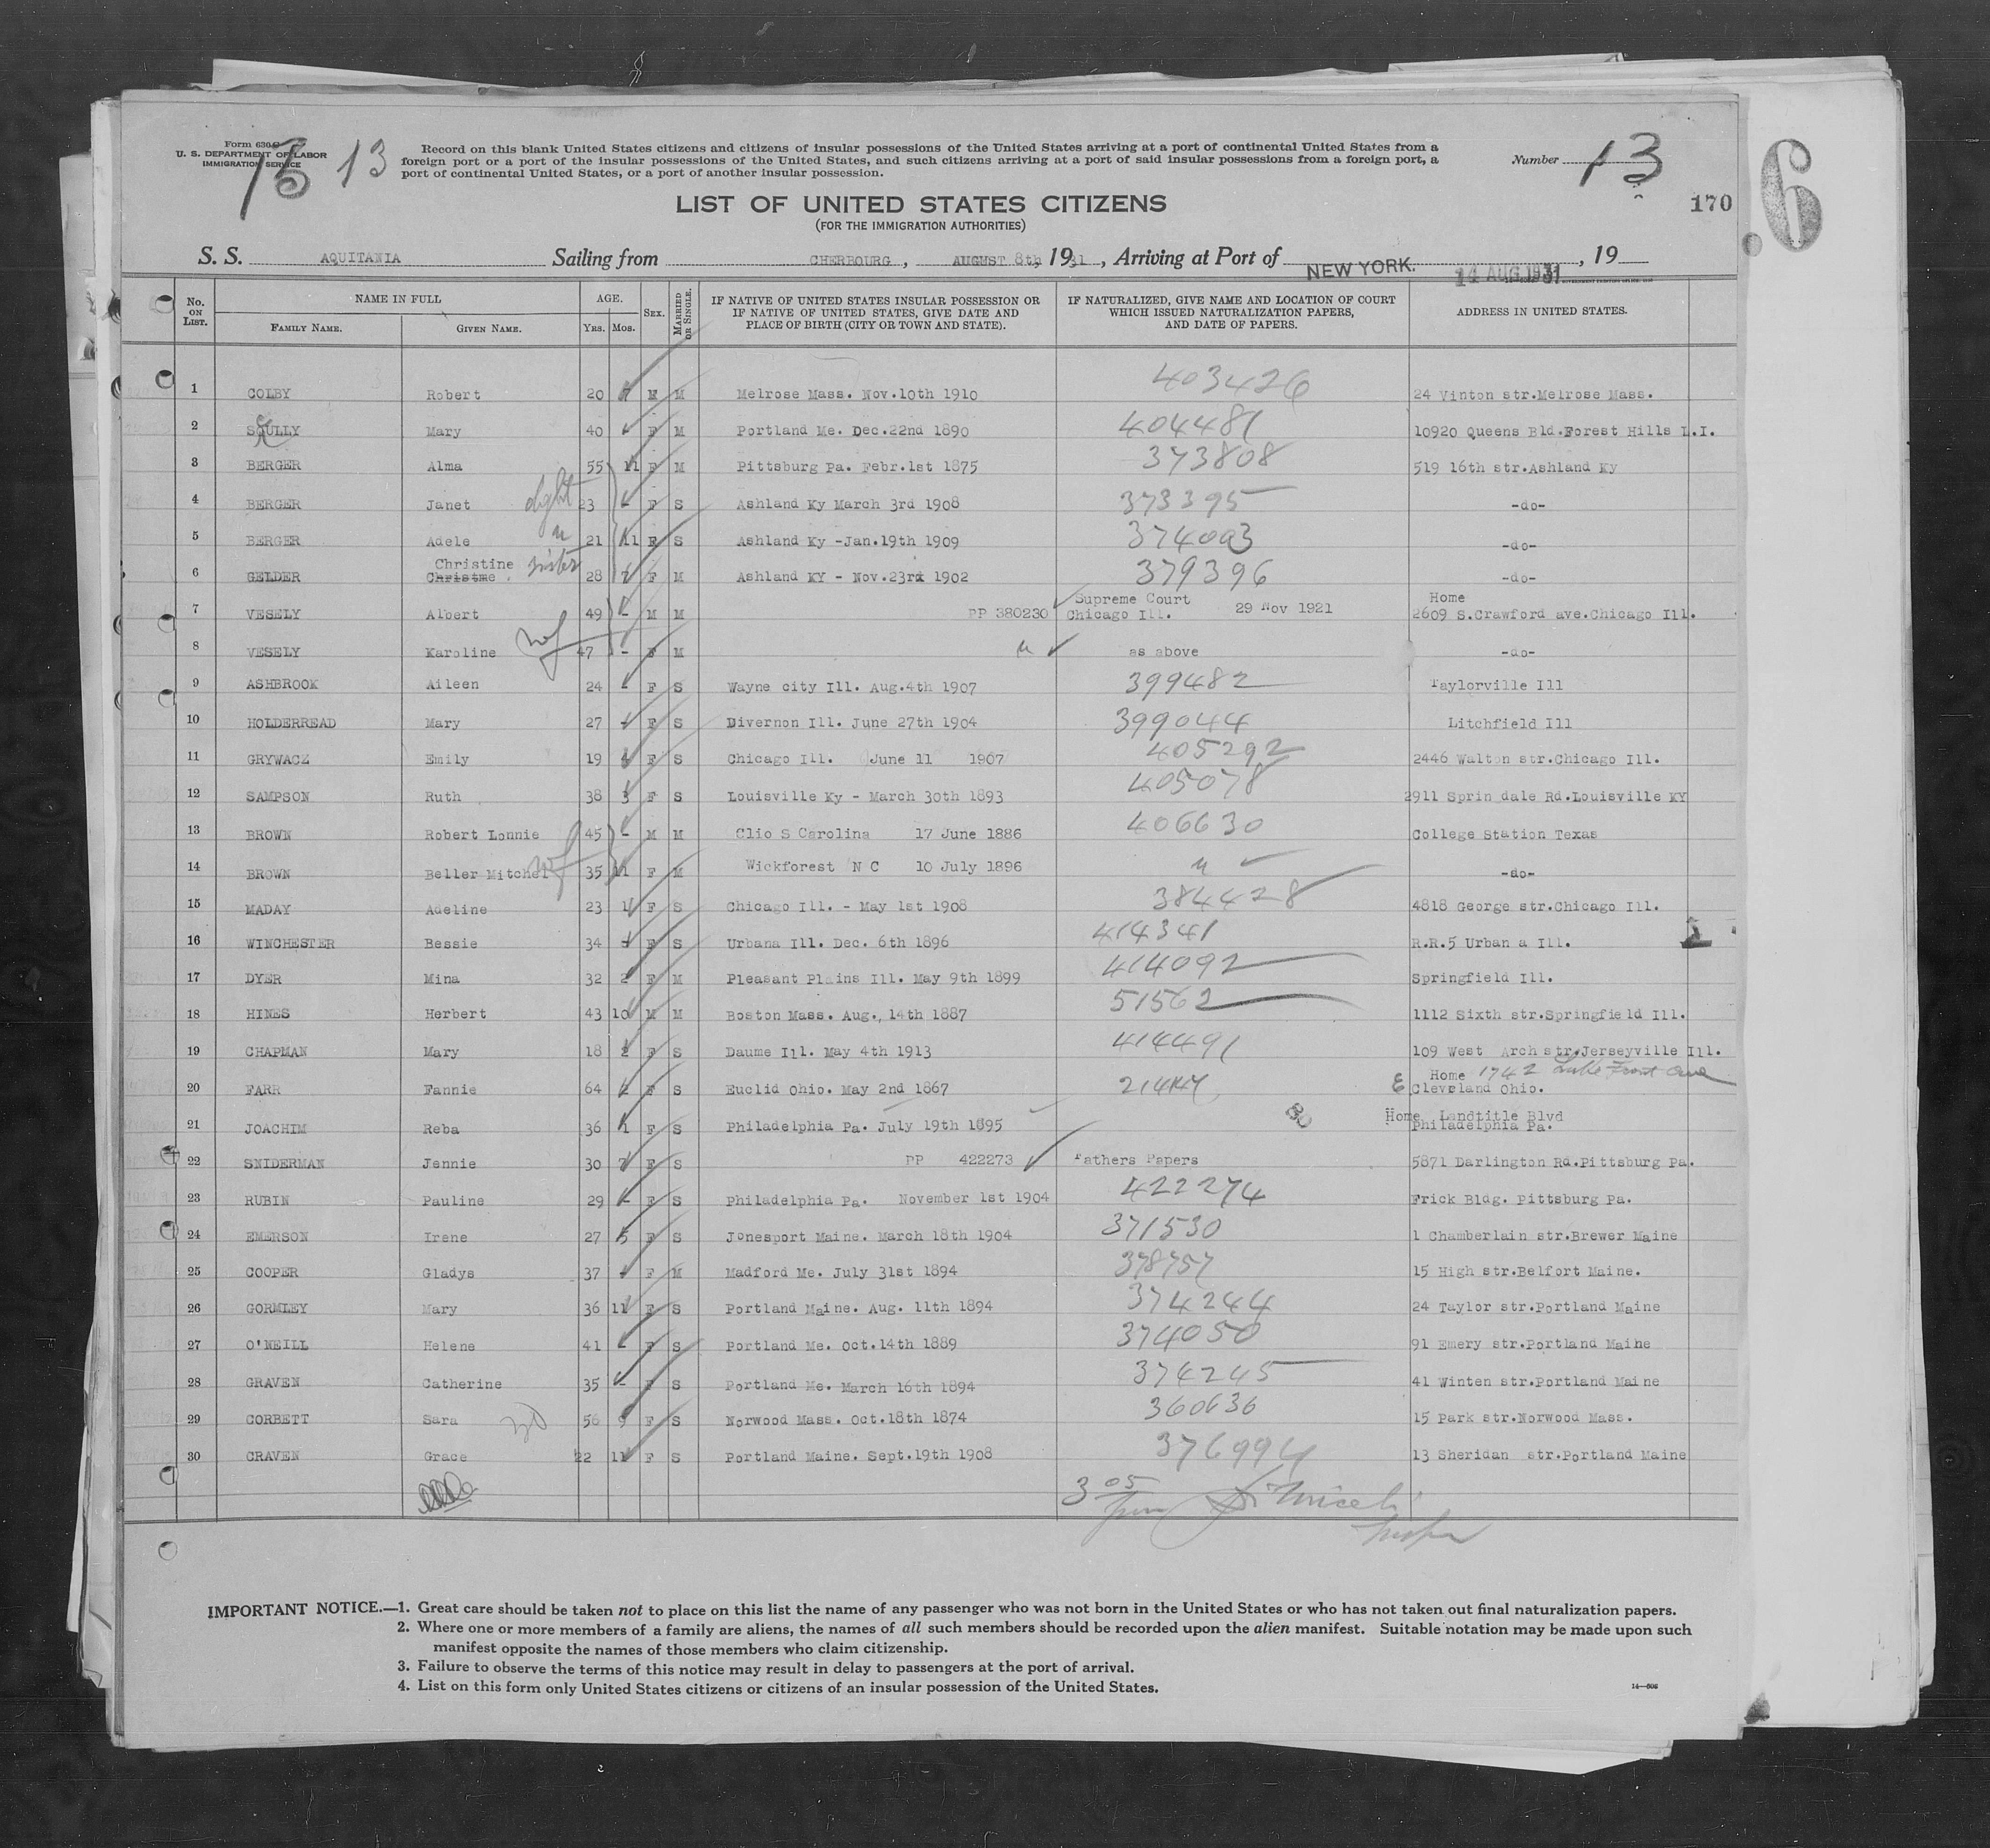 Form 630
U. S. DEPARTMENT OF LABOR
IMMIGRATION SERVICE
13 13
Record on this blank United States citizens and citizens of insular possessions of the United States arriving at a port of continental United States from a
foreign port or a port of the insular possessions of the United States, and such citizens arriving at a port of said insular possessions from a foreign port, a
port of continental United States, or a port of another insular possession.
Number 13
170
6
LIST OF UNITED STATES CITIZENS
(FOR THE IMMIGRATION AUTHORITIES)
S. S. AQUITANIA Sailing from CHERBOURG, AUGUST 8th, 1931, Arriving at Port of NEW YORK. 14 AUG 1931, 19
No. ON LIST. NAME IN FULL FAMILY NAME. GIVEN NAME. AGE. YRS. MOS. SEX. MARRIED OR SINGLE. IF NATIVE OF UNITED STATES INSULAR POSSESSION OR IF NATIVE OF UNITED STATES, GIVE DATE AND PLACE OF BIRTH (CITY OR TOWN AND STATE). IF NATURALIZED, GIVE NAME AND LOCATION OF COURT WHICH ISSUED NATURALIZATION PAPERS, AND DATE OF PAPERS. ADDRESS IN UNITED STATES.
1 COLBY Robert 20 7 M M Melrose Mass. Nov.10th 1910 403426 24 Vinton str.Melrose Mass.
2 SCULLY Mary 40 - F M Portland Me. Dec.22nd 1890 404481 10920 Queens Bld.Forest Hills L.I.
3 BERGER Alma 55 11 F M Pittsburg Pa. Febr.1st 1875 373808 519 16th str.Ashland Ky
4 BERGER Janet dght 23 - F S Ashland Ky March 3rd 1908 373395 -do-
5 BERGER Adele " 21 11 F S Ashland Ky -Jan.19th 1909 374003 -do-
6 GELDER Christme Christine sister 28 7 F M Ashland KY - Nov.23rd 1902 379396 -do-
7 VESELY Albert 49 - M M PP 380230 Supreme Court Chicago Ill. 29 Nov 1921 Home 2609 S.Crawford ave.Chicago Ill.
8 VESELY Karoline wf 47 - F M " as above -do-
9 ASHBROOK Aileen 24 - F S Wayne city Ill. Aug.4th 1907 399482 Taylorville Ill
10 HOLDERREAD Mary 27 - F S Divernon Ill. June 27th 1904 399044 Litchfield Ill
11 GRYWACZ Emily 19 F S Chicago Ill. June 11 1907 405292 2446 Walton str.Chicago Ill.
12 SAMPSON Ruth 38 3 F S Louisville Ky - March 30th 1893 405078 2911 Sprin dale Rd.Louisville KY
13 BROWN Robert Lonnie 45 - M M Clio S Carolina 17 June 1886 406630 College Station Texas
14 BROWN Beller Mitchel wf 35 11 F M Wickforest N C 10 July 1896 " -do-
15 MADAY Adeline 23 F S Chicago Ill. - May 1st 1908 384428 4818 George str.Chicago Ill.
16 WINCHESTER Bessie 34 - F S Urbana Ill. Dec. 6th 1896 414341 R.R.5 Urban a Ill.
17 DYER Mina 32 2 F M Pleasant Plains Ill. May 9th 1899 414092 Springfield Ill.
18 HINES Herbert 43 10 M M Boston Mass. Aug., 14th 1887 51562 1112 Sixth str.Springfield Ill.
19 CHAPMAN Mary 18 2 F S Daume Ill. May 4th 1913 414491 109 West Arch str.Jerseyville Ill.
20 FARR Fannie 64 2 F S Euclid Ohio. May 2nd 1867 Home 1742 Lake Front ave E Cleveland Ohio.
21 JOACHIM Reba 36 1 F S Philadelphia Pa. July 19th 1895 Home Landtitle Blvd Philadelphia Pa.
22 SNIDERMAN Jennie 30 7 F S PP 422273 Fathers Papers 5871 Darlington Rd.Pittsburg Pa.
23 RUBIN Pauline 29 - F S Philadelphia Pa. November 1st 1904 422274 Frick Bldg. Pittsburg Pa.
24 EMERSON Irene 27 5 F S Jonesport Maine. March 18th 1904 371530 1 Chamberlain str.Brewer Maine
25 COOPER Gladys 37 - F M Madford Me. July 31st 1894 378757 15 High str.Belfort Maine.
26 GORMLEY Mary 36 11 F S Portland Maine. Aug. 11th 1894 374244 24 Taylor str.Portland Maine
27 O'NEILL Helene 41 - F S Portland Me. Oct.14th 1889 374050 91 Emery str.Portland Maine
28 GRAVEN Catherine 35 - F S Portland Me. March 16th 1894 374245 41 Winten str.Portland Maine
29 CORBETT Sara 30 56 9 F S Norwood Mass. Oct.18th 1874 360636 15 Park str.Norwood Mass.
30 CRAVEN Grace 22 11 F S Portland Maine. Sept.19th 1908 376994 13 Sheridan str.Portland Maine
3 05
IMPORTANT NOTICE.—1. Great care should be taken not to place on this list the name of any passenger who was not born in the United States or who has not taken out final naturalization papers.
2. Where one or more members of a family are aliens, the names of all such members should be recorded upon the alien manifest. Suitable notation may be made upon such
manifest opposite the names of those members who claim citizenship.
3. Failure to observe the terms of this notice may result in delay to passengers at the port of arrival.
4. List on this form only United States citizens or citizens of an insular possession of the United States.